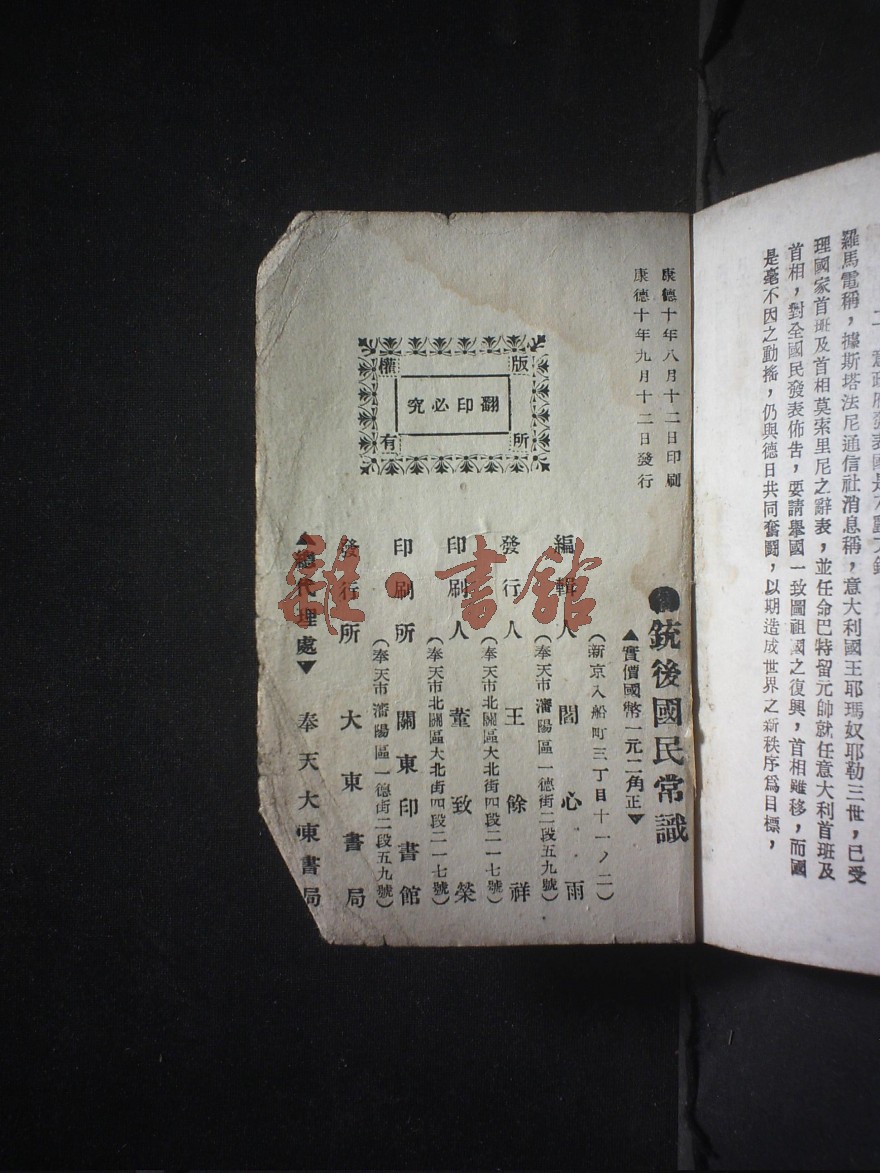 羅馬電稱，據斯塔法尼通信社消息稱，意大利國王耶瑪奴耶勒三世，已受
理國家首班及首相莫索里尼之辭表，並任命巴特留元帥就任意大利首班及
首相，對全國民發表佈告，要請舉國一致圖祖國之復興，首相雖移，而國
是毫不因之動搖，仍與德日共同奮鬪，以期造成世界之新秩序爲目標，
康德十年八月十二日印刷
康德十年九月十二日發行
版權所有
翻印必究
●銃後國民常識
▲實價國幣一元二角正▼
（新京入船町三丁目十一ノ二）
編輯人 閻心雨
（奉天市瀋陽區一德街二段五九號）
發行人 王餘祥
（奉天市北關區大北街四段二一七號）
印刷人 董致榮
（奉天市北關區大北街四段二一七號）
印刷所 關東印書館
（奉天市瀋陽區一德街二段五九號）
發行所 大東書局
▲總代理處▼ 奉天大東書局
雜·書館